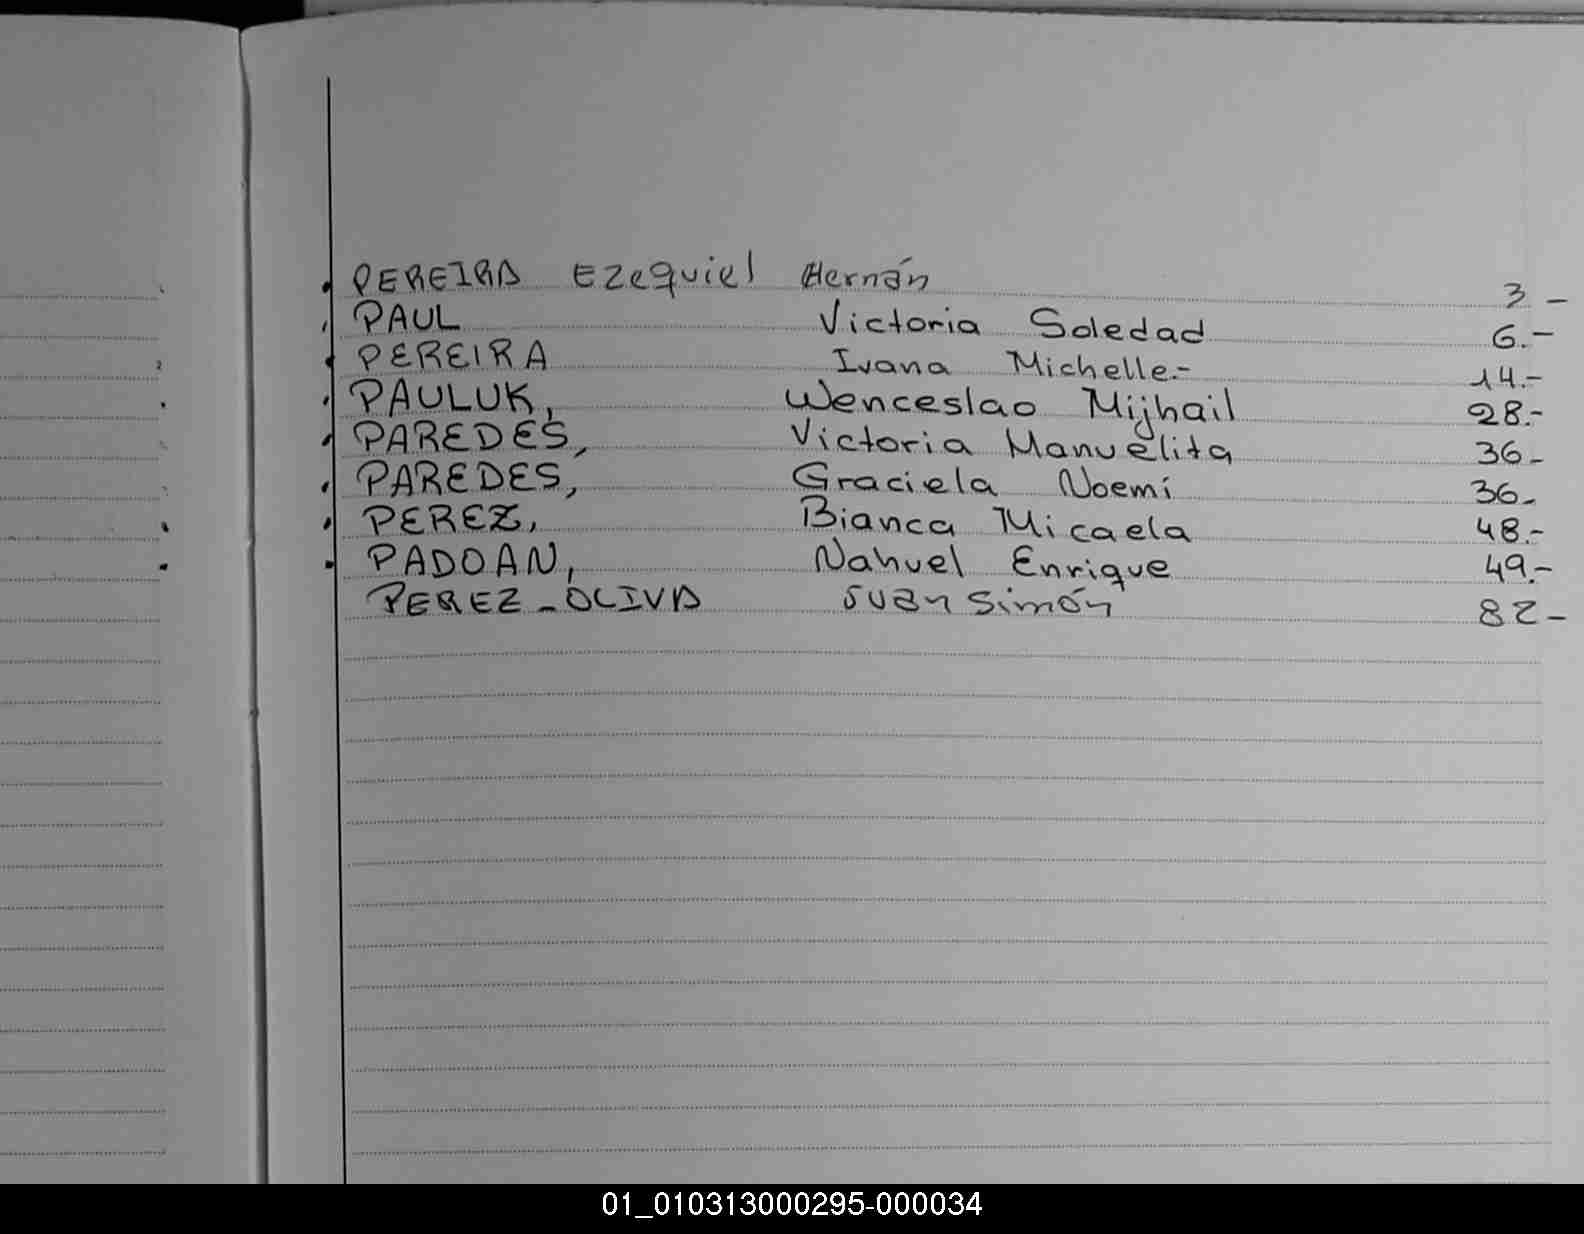 PEREIRA Ezequiel Hernán 3 -
PAUL Victoria Soledad 6.-
PEREIRA Ivana Michelle.- 14.-
PAULUK, Wenceslao Mijhail 28.-
PAREDES, Victoria Manuelita 36-
PAREDES, Graciela Noemí 36-
PEREZ, Bianca Micaela 48.-
PADOAN, Nahuel Enrique 49.-
PEREZ-OLIVA Juan Simón 82-
01_010313000295-000034